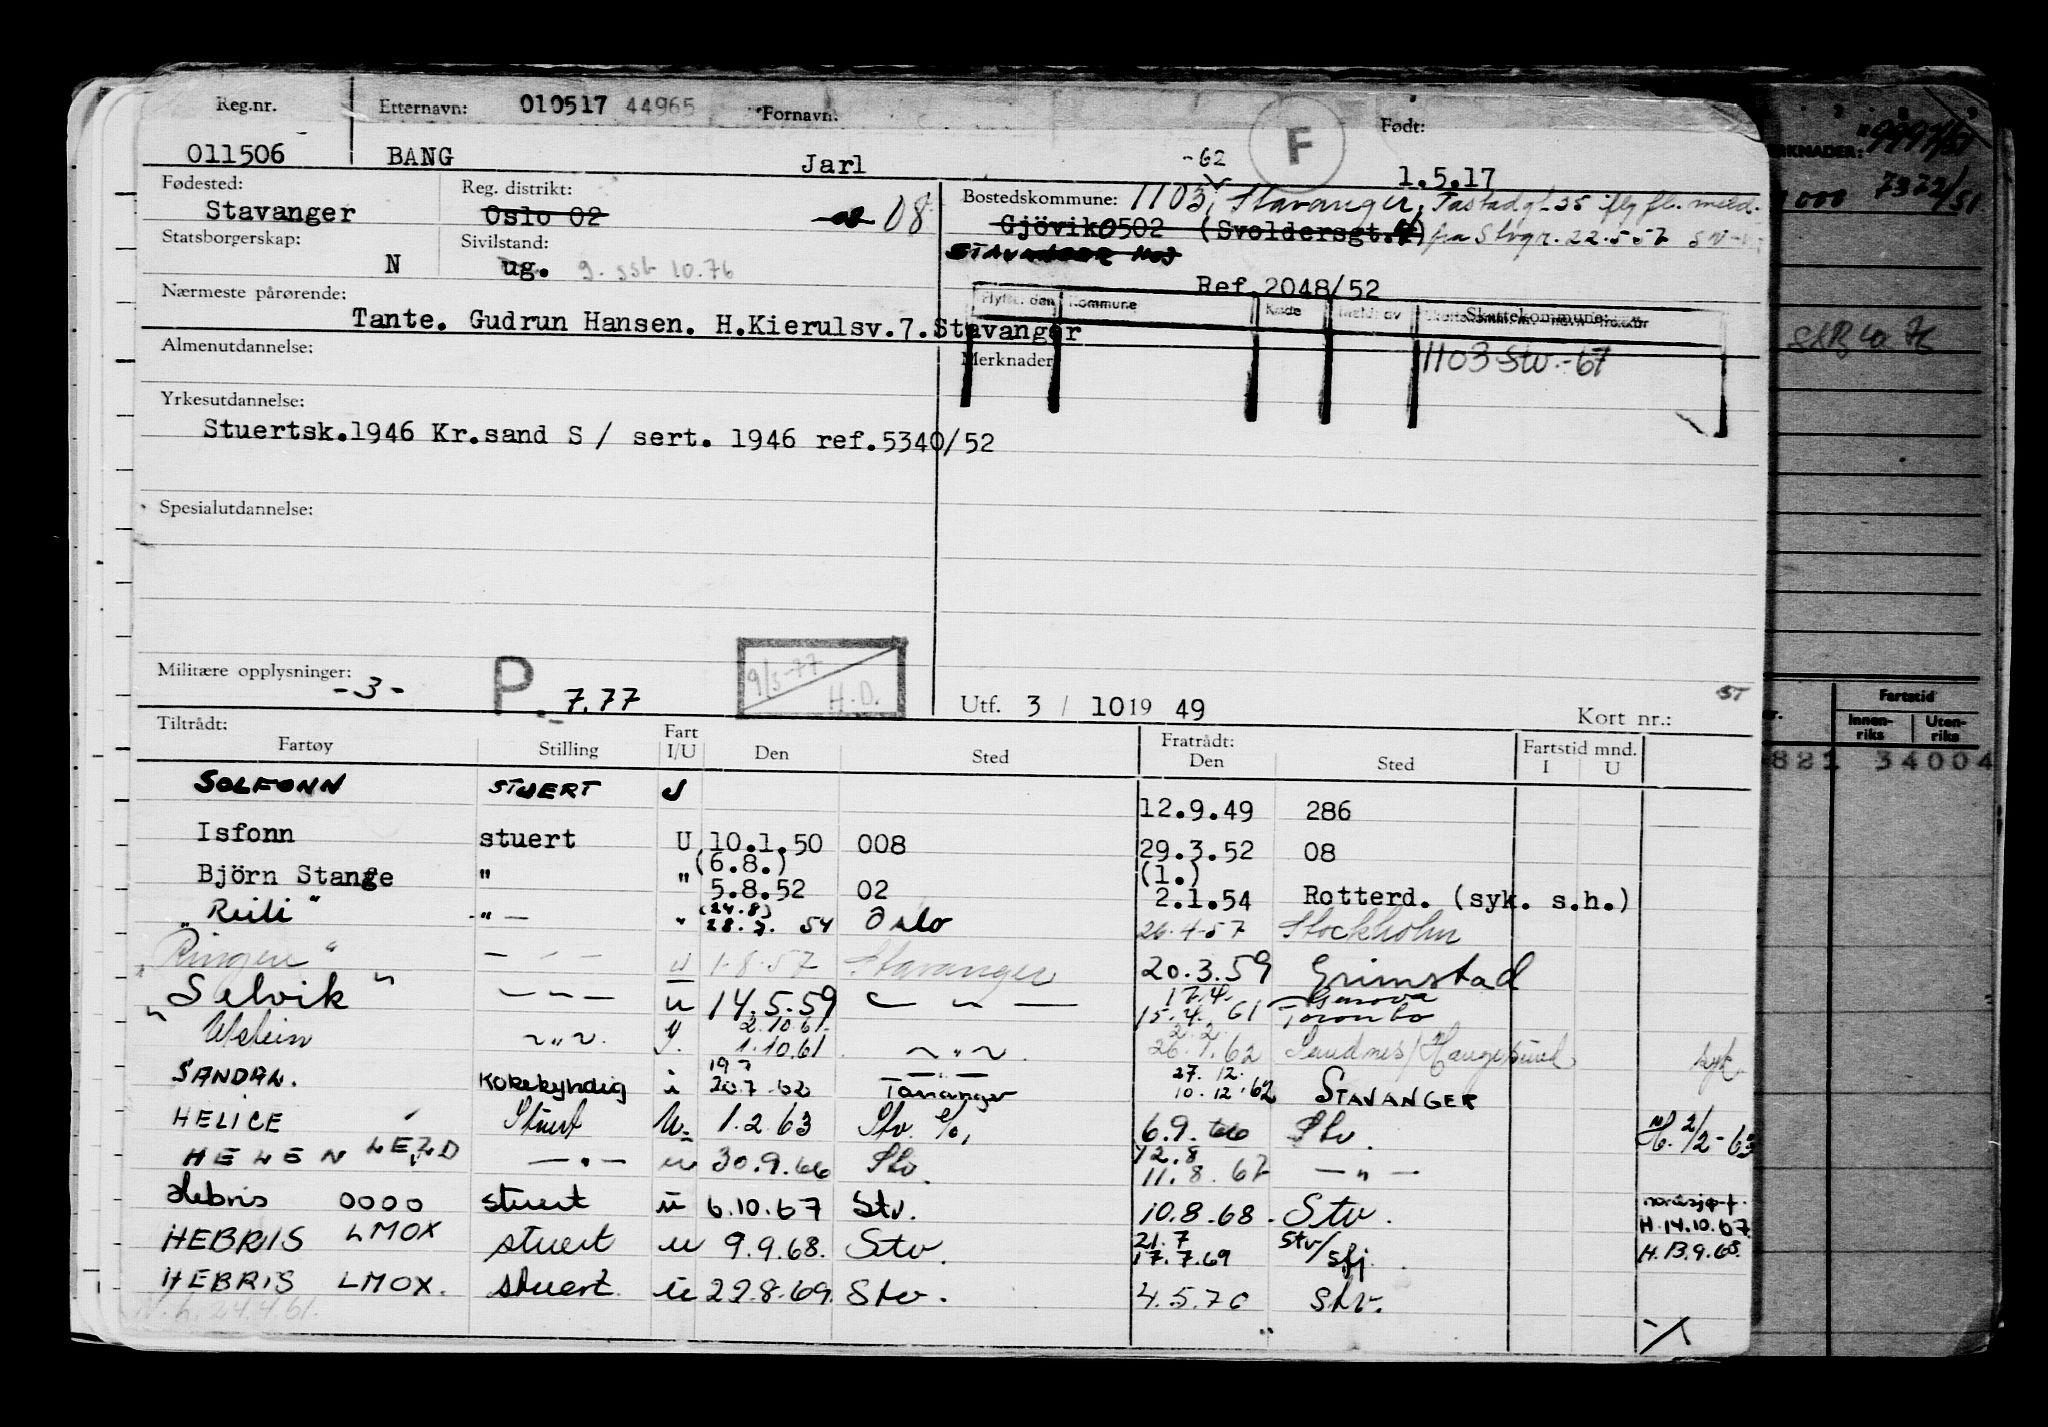 Reg.nr. Etternavn: 010517 44965 Fornavn: F Født:
011506 BANG Jarl -62 1.5.17
Fødested: Reg. distrikt: Bostedskommune: 1103, Stavanger, Tastadgt. 35 iflg fl. meld.
Stavanger Oslo 02 02 08 Gjövik 0502 (Svoldersgt.4) fra Stvgr. 22.5.57
Statsborgerskap: Sivilstand: STAVANGER 1103
N ug. g. ssb 10.76
Nærmeste pårørende: Ref. 2048/52
Flytt. den Kommune Kode Meld. av Skattekommune:
Tante. Gudrun Hansen. H.Kierulsv.7. Stavanger
Almenutdannelse: Merknader 1103 Stv.-67
Yrkesutdannelse:
Stuertsk.1946 Kr.sand S / sert. 1946 ref.5340/52
Spesialutdannelse:
Militære opplysninger: -3- P. 7.77 9/5-77 H.D. Utf. 3 / 10 19 49 Kort nr.: ST
Tiltrådt: Fart Fratrådt: Fartstid mnd.
Fartøy Stilling I/U Den Sted Den Sted I U
SOLFONN STUERT U 12.9.49 286
Isfonn stuert U 10.1.50 008 29.3.52 08
(6.8.) (1.)
Björn Stange " " 5.8.52 02 2.1.54 Rotterd. (syk. s.h.)
(24.8)
"Reili" -"- " 28.7. 54 Oslo 26.4-57 Stockholm
Ringen" - " - u 1.8.57 Stavanger 20.3.59 Grimstad
17.4. Genova
"Selvik" - " - u 14.5.59 - " - 15.4. 61 Toronto
2.10.61. 2.2
Utstein - " - 1.10.61 - " - 26.1.62 Sandnes/Haugesund syk.
19.7 27. 12.
SANDAN. Kokekyndig i 20.7.62 Tananger 10.12.62 STAVANGER
HELICE Stuert U. 1.2.63 Stv. 6.9.66 Stv. H. 2/2-63
12.8
HELEN LEZD - " - u 30.9.66 Stv. 11.8.67 - " -
Hebris 0000 stuert u 6.10.67 Stv. 10.8.68. Stv. H.14.10.67
21.7
HEBRIS LMOX stuert u 9.9.68. Stv. 17.7.69 Stv/sfj. H.13.9.68
HEBRIS LMOX. stuert u 22.8.69. Stv. 4.5.70 Stv.
N.h. 24.4.61.
MERKNADER: 9997/51
7372/51
SSB 10 76
Fartstid
Innenriks Utenriks
821 34004